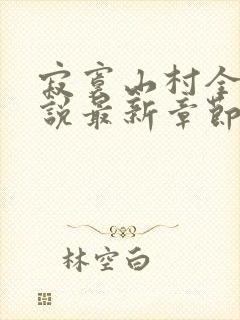 寂寞山村全
說最新章節
林空白